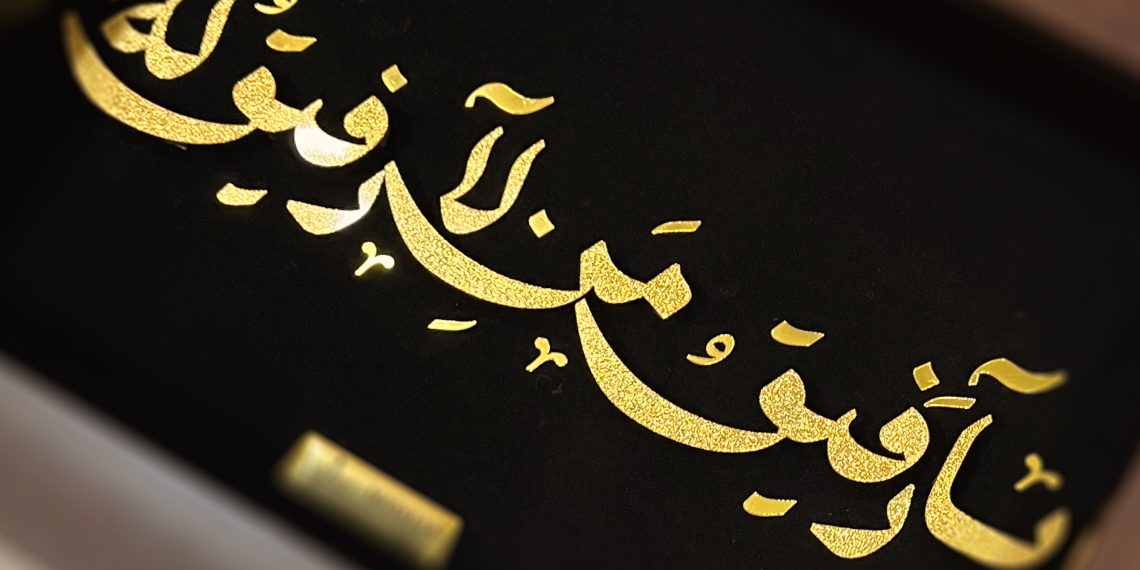 يا رفيق من لا رفيق له